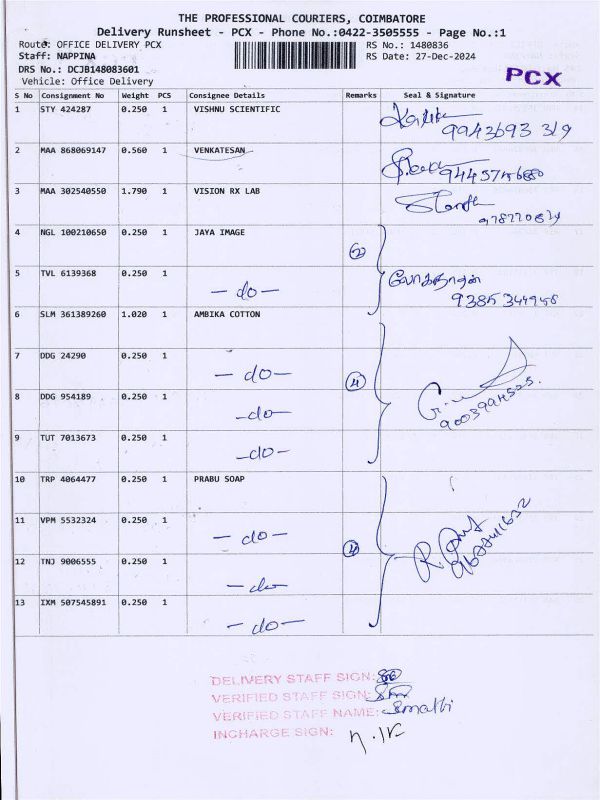 THE PROFESSIONAL COURIERS, COIMBATORE
Delivery Runsheet - PCX - Phone No.:0422-3505555 - Page No.:1
Route: OFFICE DELIVERY PCX RS No.: 1480836
Staff: NAPPINA RS Date: 27-Dec-2024
DRS No.: DCJB148083601
Vehicle: Office Delivery PCX
S No Consignment No Weight PCS Consignee Details Remarks Seal & Signature
1 STY 424287 0.250 1 VISHNU SCIENTIFIC
9943693 319
2 MAA 868069147 0.560 1 VENKATESAN
3 MAA 302540550 1.790 1 VISION RX LAB
4 NGL 100210650 0.250 1 JAYA IMAGE
2
5 TVL 6139368 0.250 1 - do - லோகநாதன்
9385344958
6 SLM 361389260 1.020 1 AMBIKA COTTON
7 DDG 24290 0.250 1 - do - 4
8 DDG 954189 0.250 1 - do -
9003994525.
9 TUT 7013673 0.250 1 - do -
10 TRP 4064477 0.250 1 PRABU SOAP
11 VPM 5532324 0.250 1 - do -
4
12 TNJ 9006555 0.250 1 - do -
13 IXM 507545891 0.250 1 - do -
DELIVERY STAFF SIGN:
VERIFIED STAFF SIGN:
VERIFIED STAFF NAME:
INCHARGE SIGN: